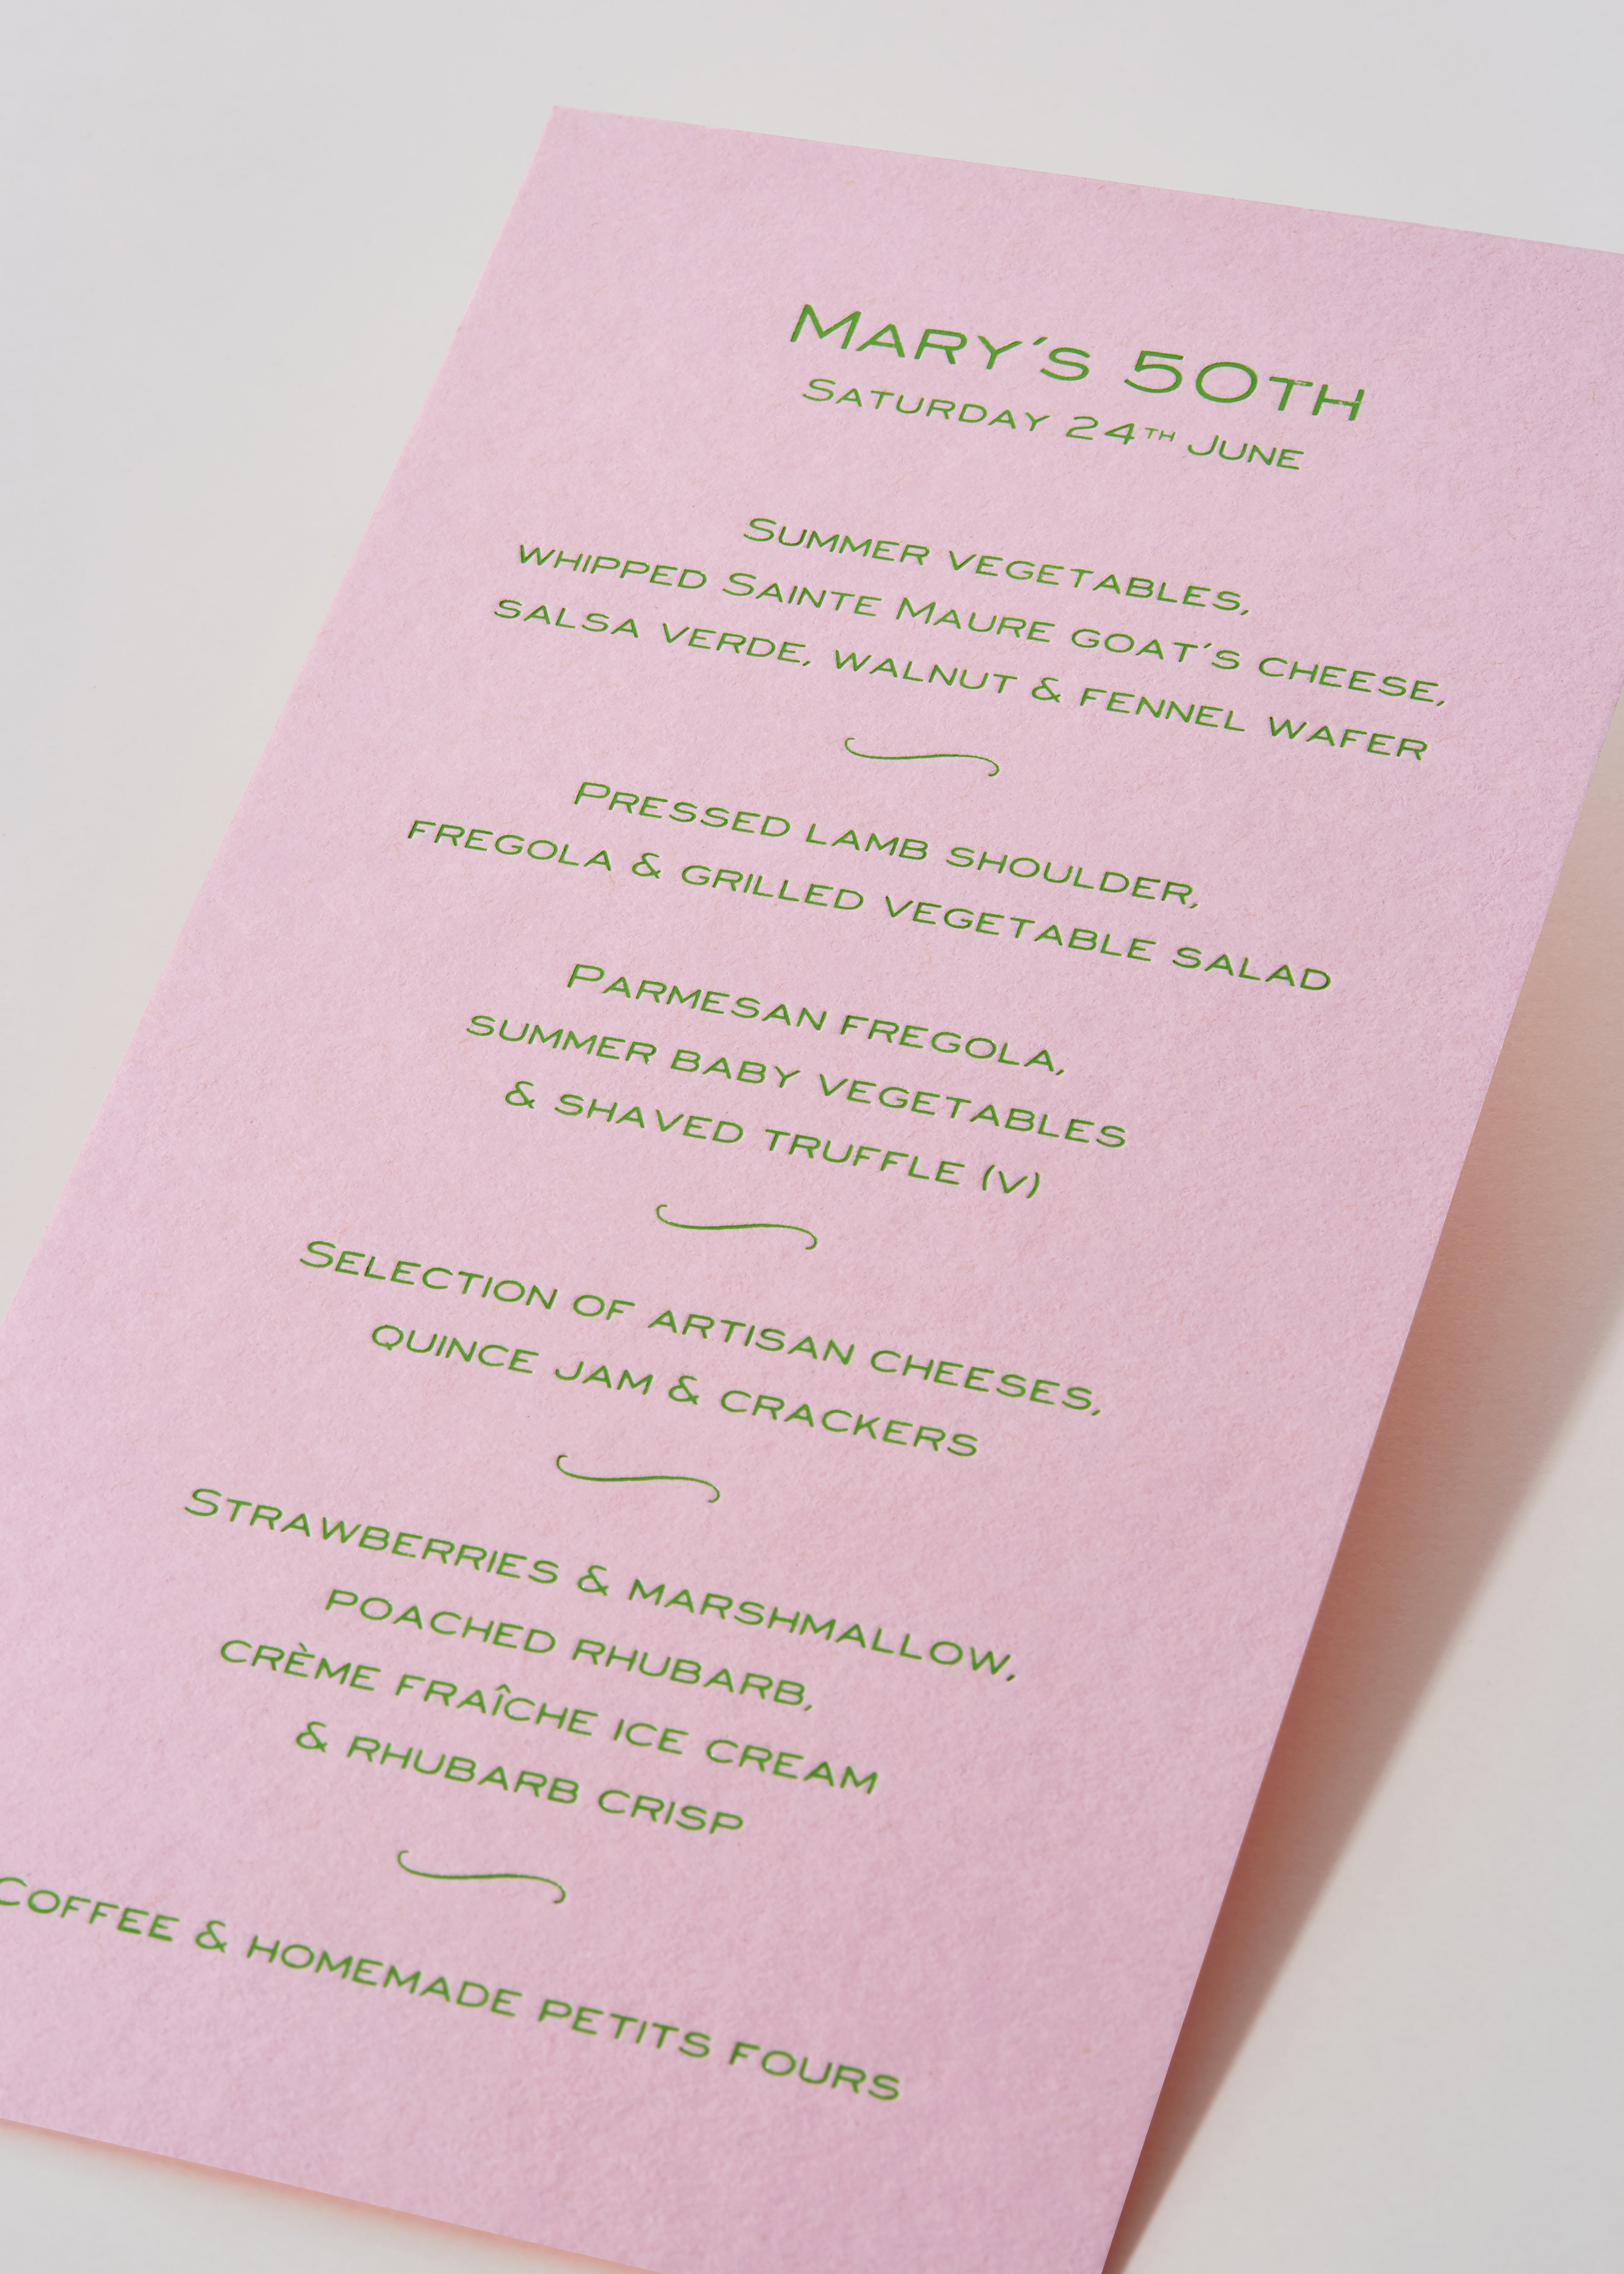 Mary's 50th
Saturday 24th June
Summer vegetables,
whipped Sainte Maure goat's cheese,
salsa verde, walnut & fennel wafer
Pressed lamb shoulder,
fregola & grilled vegetable salad
Parmesan fregola,
summer baby vegetables
& shaved truffle (v)
Selection of artisan cheeses,
quince jam & crackers
Strawberries & marshmallow,
poached rhubarb,
crème fraîche ice cream
& rhubarb crisp
Coffee & homemade petits fours